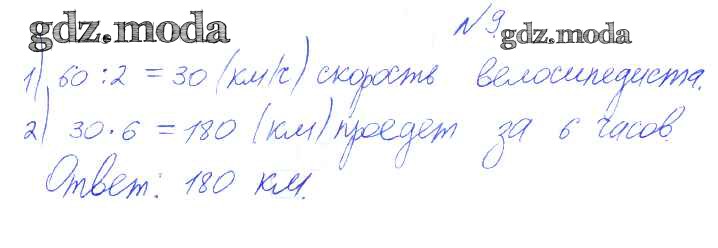 gdz.moda
№9.
gdz.moda
1) 60 : 2 = 30 (км/ч) скорость велосипедиста.
2) 30 · 6 = 180 (км) проедет за 6 часов.
Ответ: 180 км.